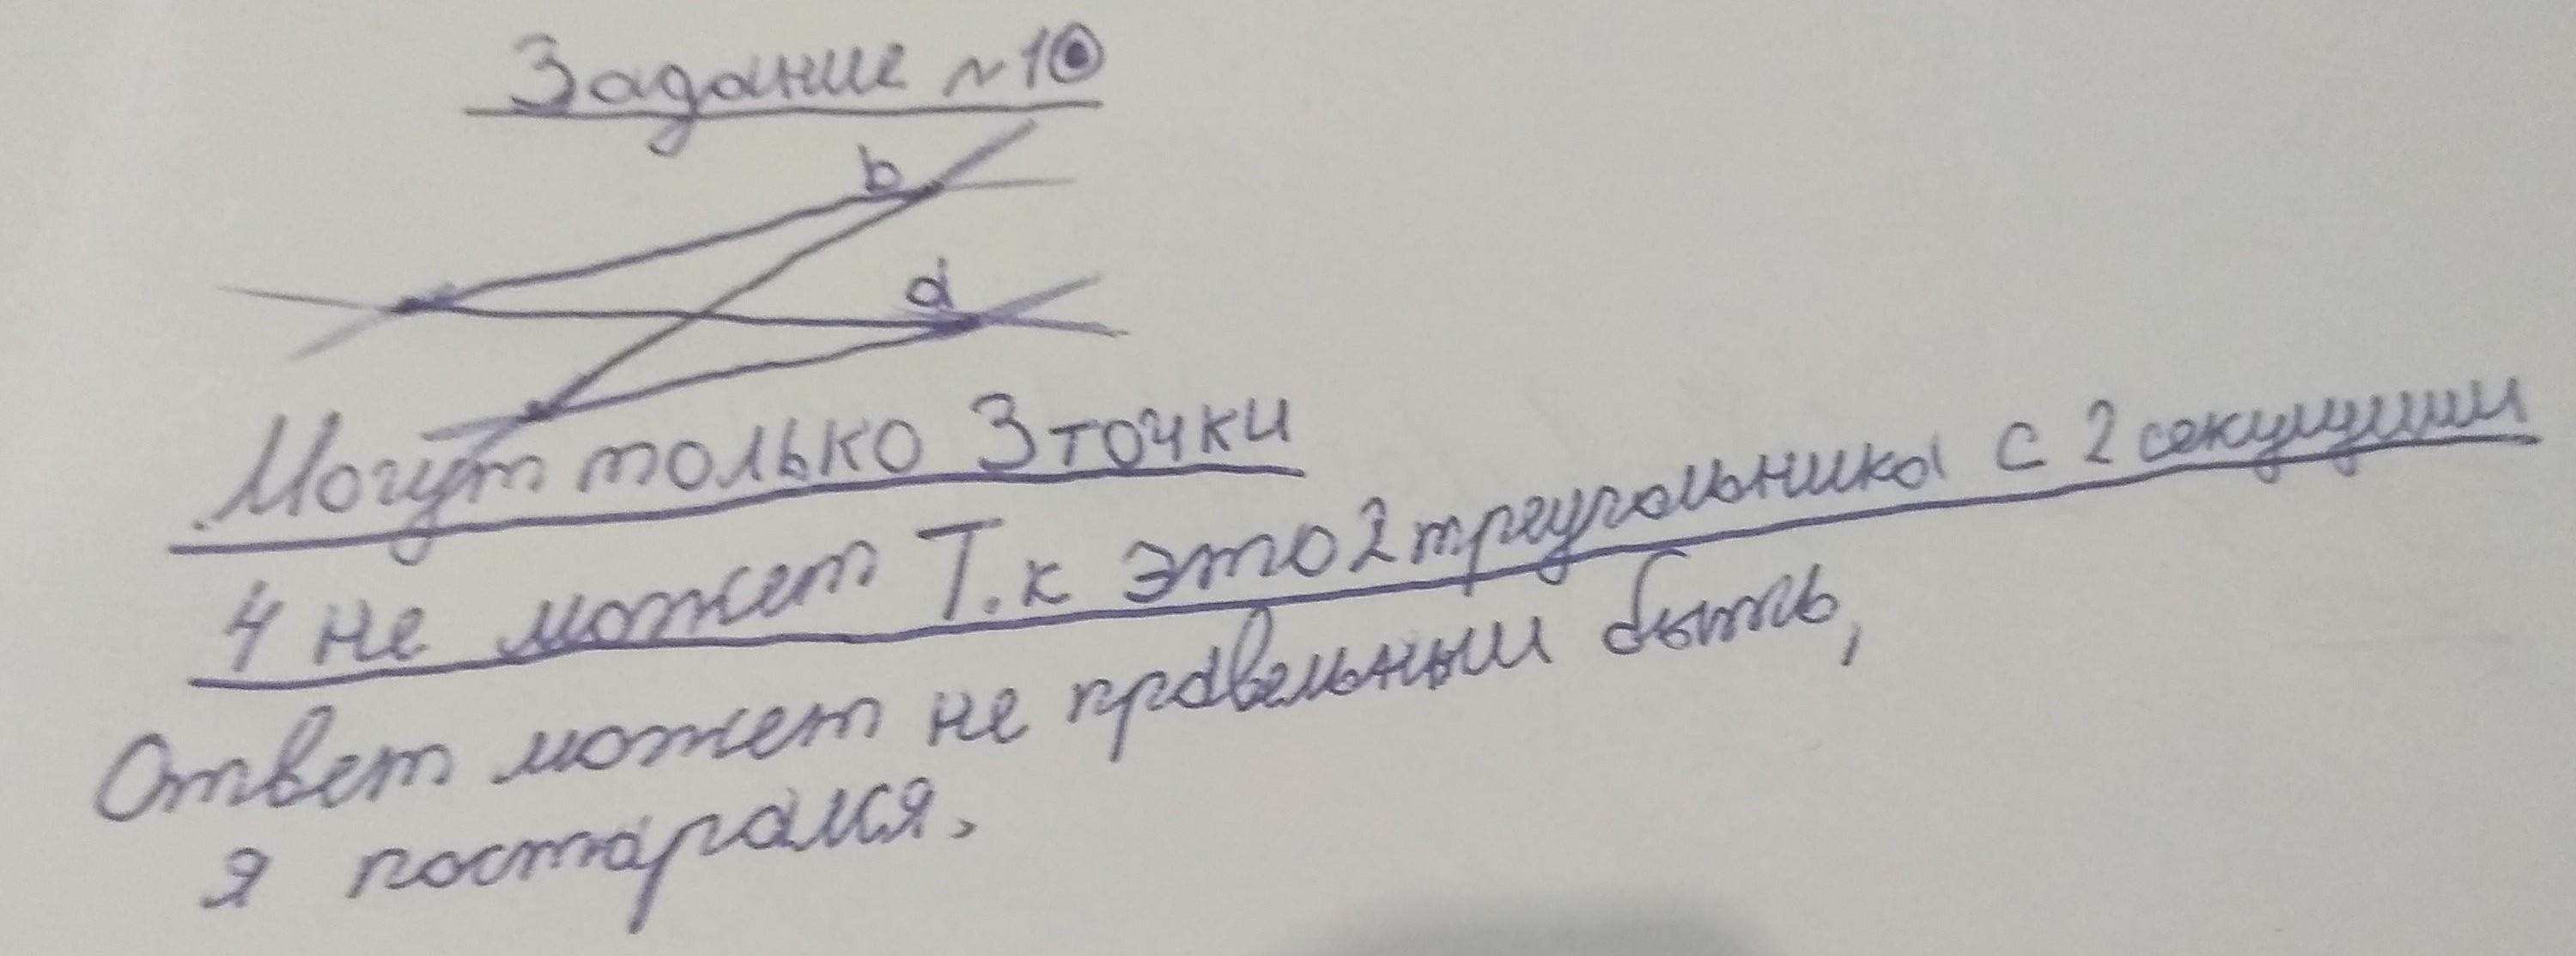 Задание ~10
b
d
Могут только 3 точки
4 не может Т.к это 2 треугольника с 2 секущими
Ответ может не правельный быть,
я постарался.